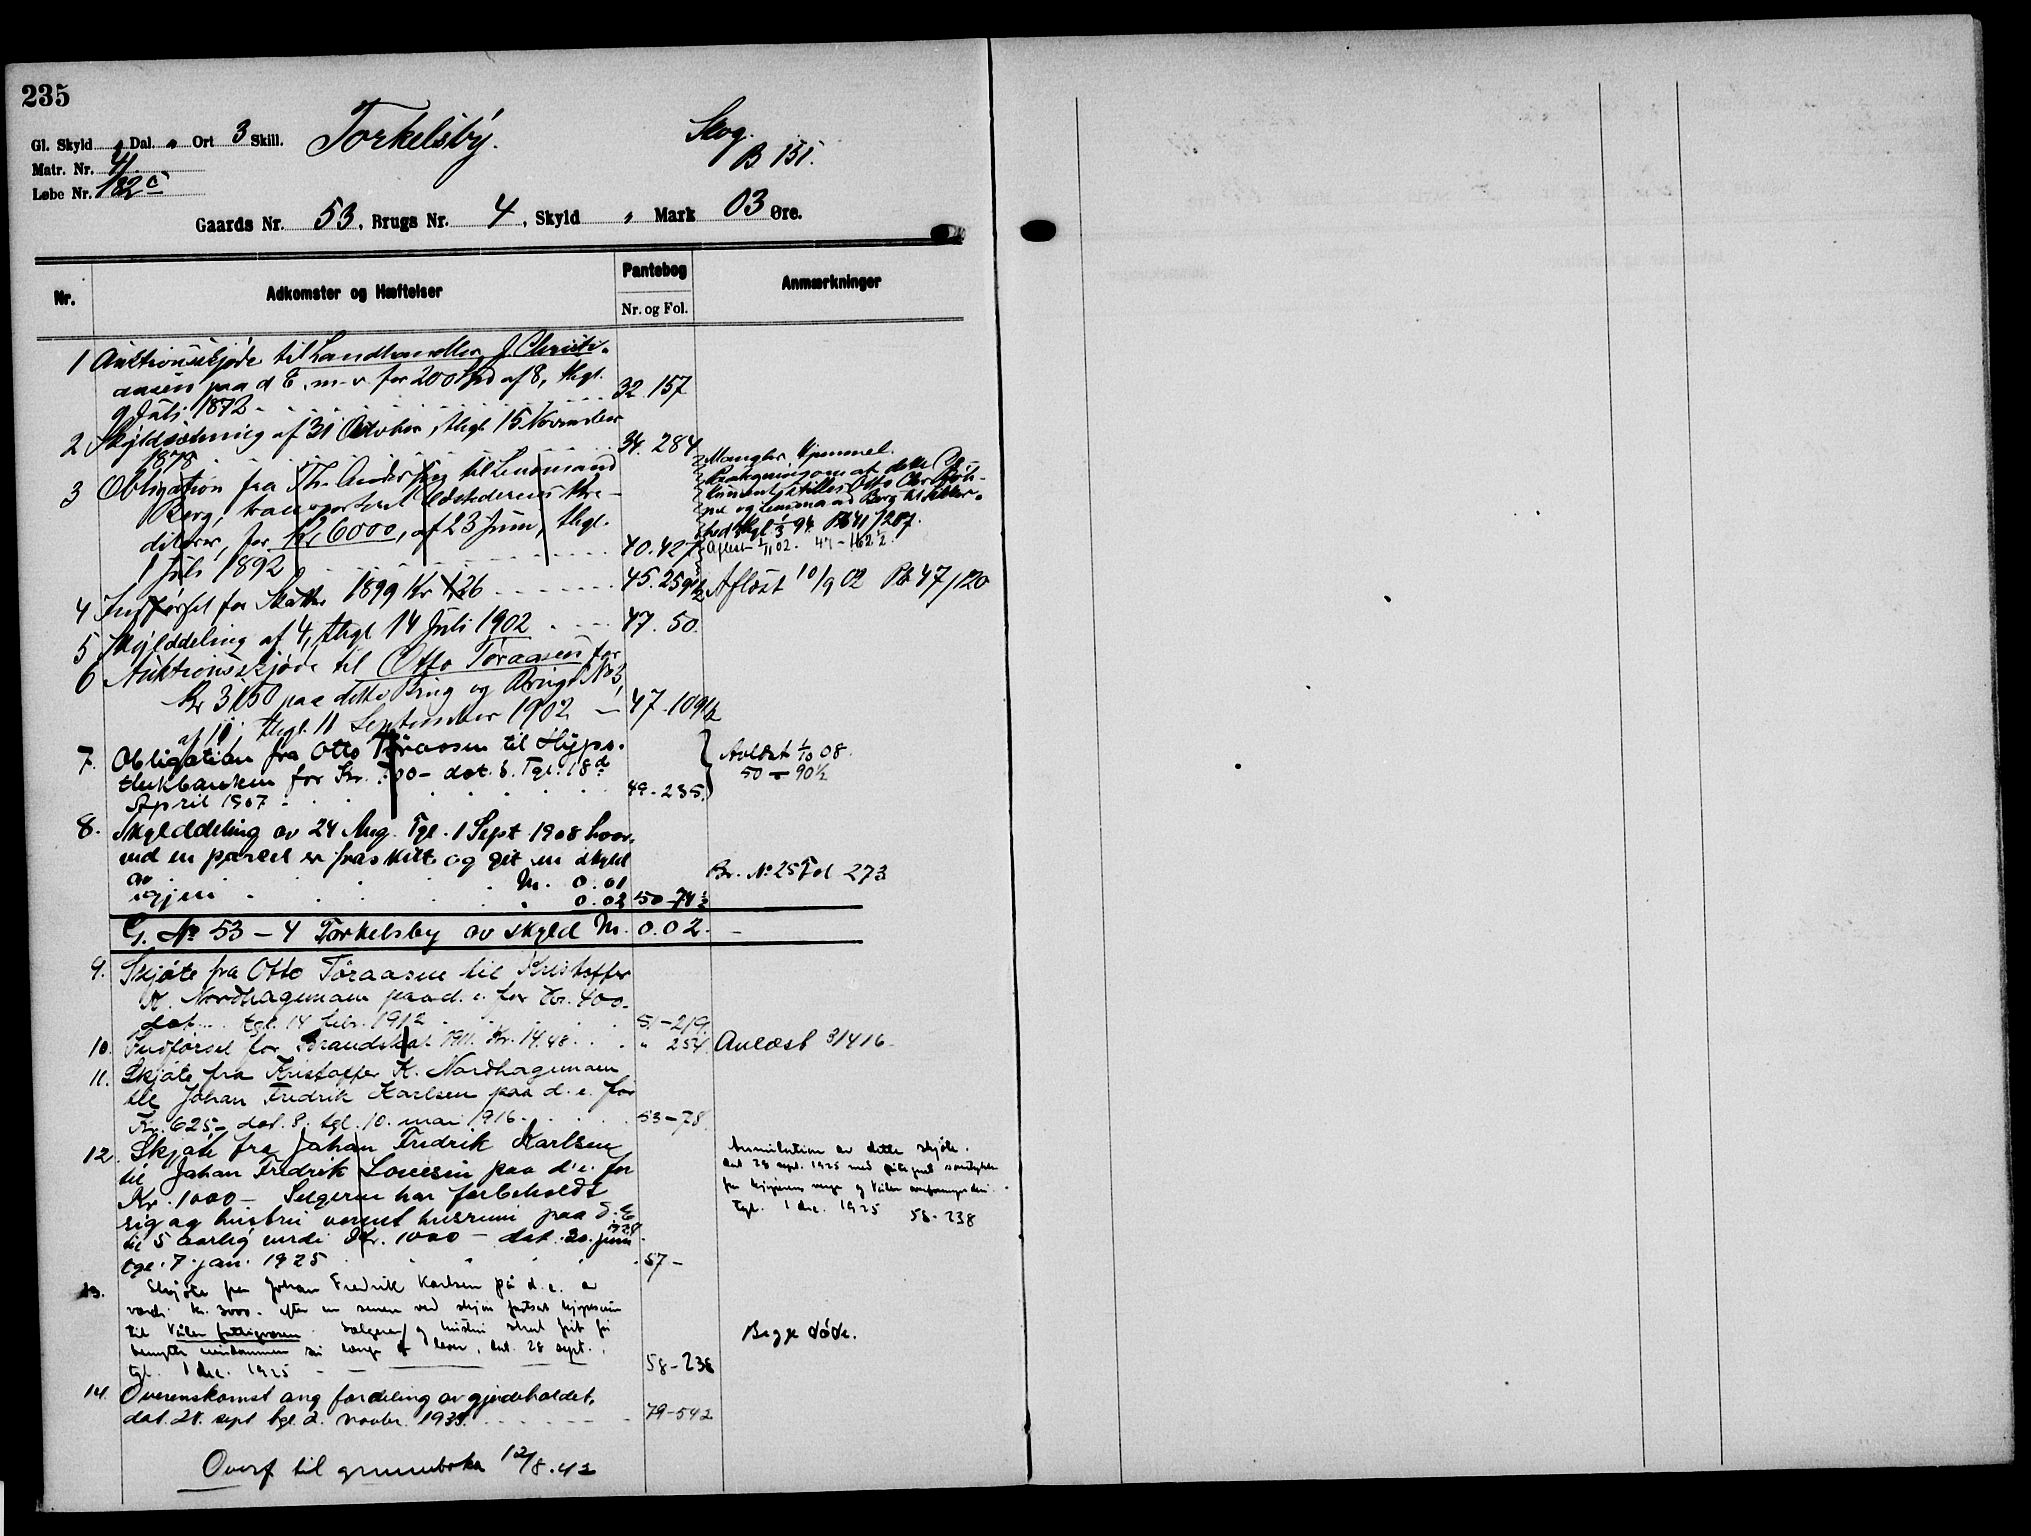 235
Gl. Skyld „ Dal. „ Ort 3 Skill. Torkelsby. Skog.
Matr. Nr. 4. B 151.
Løbe Nr. 182 c
Gaards Nr. 53, Brugs Nr. 4, Skyld „ Mark 03 Øre.
Nr. Adkomster og Hæftelser Pantebog Anmærkninger
Nr. og Fol.
1 Auktionsskjøde til Landhandler J. Christi-
ansen paa d. E. m. v. for 200 Spd af 8, thgl.
9 Juli 1872 32. 157
2 Skyldsætning af 31 October, thgl. 15 November
1878 34. 284
3 Obligation fra Th. til Lensmand
Berg, transporteret Kre-
ditorer, for Kr. 6000, af 23 Juni, thgl.
1 Juli 1892 40. 427
Mangler Hjemmel.
Otto Chr.
og Lensmand Berg
thgl. 94 Pb 41/207.
Aflest 02. 47-162½.
4 Indførsel for Skatter 1899 Kr 126 45. 259½ Aflæst 10/9 02 Pb 47/120
5 Skylddeling af 4, thgl 14 Juli 1902 47. 50.
6 Auktionsskjøde til Otto Toraasen for
Kr 3150 paa dette Brug og Brugs No 3,
af 10, thgl. 11 September 1902 47-109½
7. Obligation fra Otto Toraasen til Hypo-
thekbanken for Kr. 700- dat. 8. Tgl. 18de
April 1907 49-235.
Avlæst 1/10 08.
50-90½
8. Skylddeling av 24 Aug. Tgl. 1 Sept 1908 hvor-
ved en parcel er fraskilt og git en skyld
av M. 0.01 Br. No 25 Fol 273
igjen 0.02 50-74½
G. No 53-4 Torkelsby av skyld M. 0.02.
9. Skjøte fra Otto Toraasen til Kristoffer
K. Nordhagemoen paa d. e. for Kr. 400-
dat... tgl. 14 febr. 1912 51-219.
10. Indførsel for Brandskat 1911. Kr. 14.48. „ 254 Avlæst 3/4 16
11. Skjøte fra Kristoffer K. Nordhagemoen
til Johan Fredrik Karlsen paa d. e. for
Kr. 625- dat. 8. tgl. 10. mai 1916. 53-78.
12. Skjøte fra Johan Fredrik Karlsen
til Johan Fredrik Lovesen paa d. e. for
Kr. 1000- Selgeren har forbeholdt
sig og hustru varmt husrum paa d. E
til 5 aarlig verdi Kr. 1000- dat. 20. juni 1924
tgl. 7. jan. 1925 57-
Annulation av dette skjøte.
dat 28 sept. 1925 med påtegnet samtykke
fra kjøperens verge og Våler overformynderi.
tgl. 1 dec. 1925 58-238
13. Skjøte fra Johan Fredrik Karlsen på d. e. a
værdi kr. 3000- efter en senere ved skjøn fastsat kjøpesum
til Våler fattigvæsen. Sælgeren og hustru skal frit få
benytte eiendommen så længe de lever, dat. 28 sept.,
tgl. 1 dec. 1925 58-238
Begge døde.
14. Overenskomst ang fordeling av gjerdeholdet,
dat. 28. sept tgl. 2. novbr. 1939. 79-542
Overf til grunnboka 12/8. 42